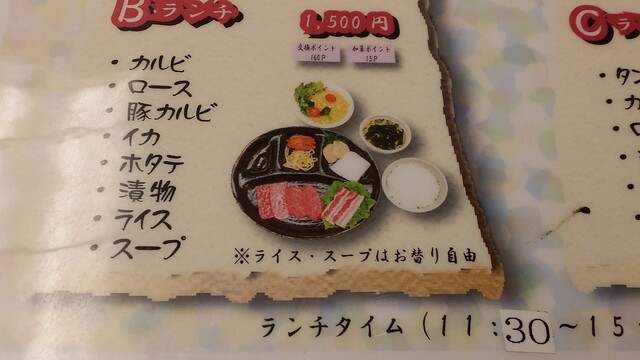 Bランチ
1,500円
交換ポイント
160P
加算ポイント
15P
・カルビ
・ロース
・豚カルビ
・イカ
・ホタテ
・漬物
・ライス
・スープ
※ライス・スープはお替り自由
C
・タン
ランチタイム（11:30～15